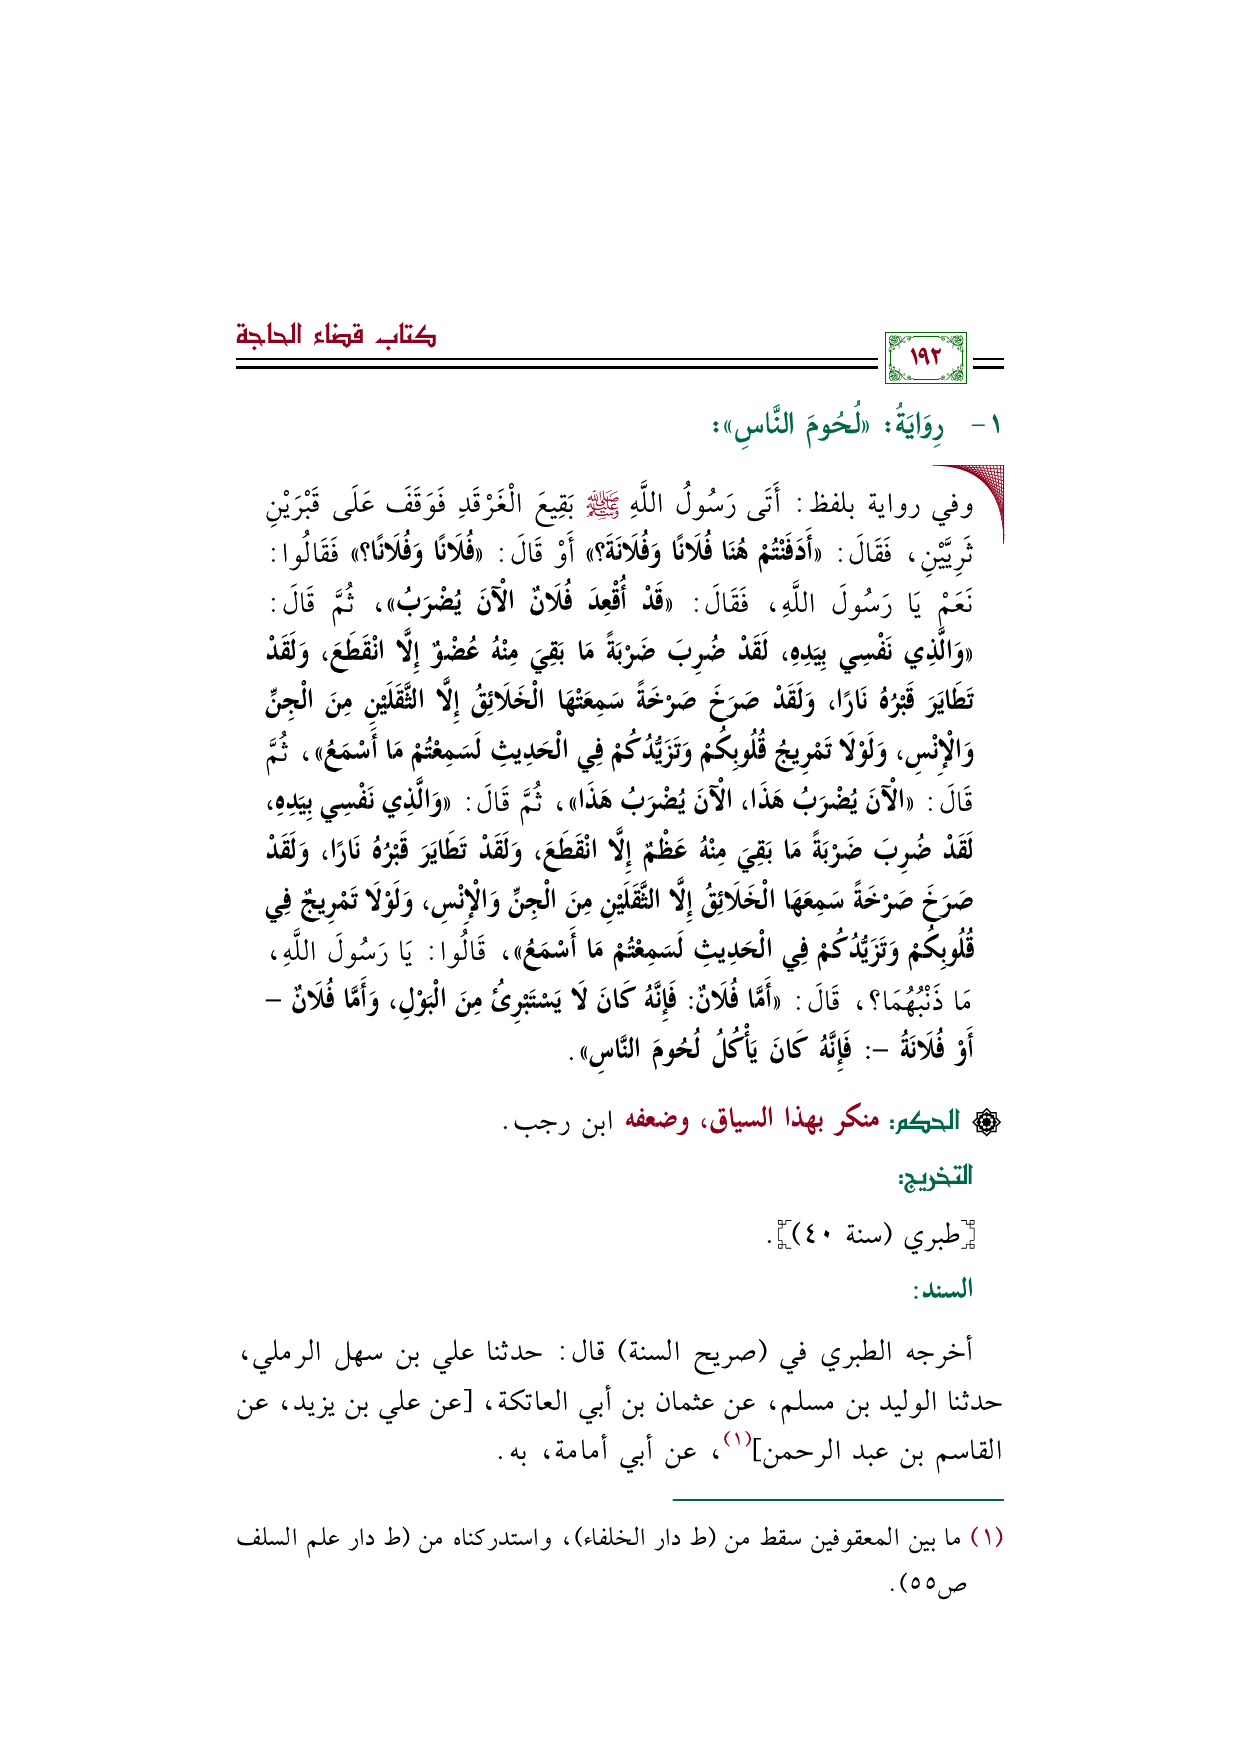 كتاب قضاء الحاجة
١٩٢
١- رِوَايَةُ: «لُحُومَ النَّاسِ»:
وفي رواية بلفظ: أَتَى رَسُولُ اللَّهِ ﷺ بَقِيعَ الْغَرْقَدِ فَوَقَفَ عَلَى قَبْرَيْنِ
ثَرِيَّيْنِ، فَقَالَ: «أَدَفَنْتُمْ هُنَا فُلَانًا وَفُلَانَةَ؟» أَوْ قَالَ: «فُلَانًا وَفُلَانًا؟» فَقَالُوا:
نَعَمْ يَا رَسُولَ اللَّهِ، فَقَالَ: «قَدْ أُقْعِدَ فُلَانٌ الْآنَ يُضْرَبُ»، ثُمَّ قَالَ:
«وَالَّذِي نَفْسِي بِيَدِهِ، لَقَدْ ضُرِبَ ضَرْبَةً مَا بَقِيَ مِنْهُ عُضْوٌ إِلَّا انْقَطَعَ، وَلَقَدْ
تَطَايَرَ قَبْرُهُ نَارًا، وَلَقَدْ صَرَخَ صَرْخَةً سَمِعَتْهَا الْخَلَائِقُ إِلَّا الثَّقَلَيْنِ مِنَ الْجِنِّ
وَالْإِنْسِ، وَلَوْلَا تَمْرِيجُ قُلُوبِكُمْ وَتَزَيُّدُكُمْ فِي الْحَدِيثِ لَسَمِعْتُمْ مَا أَسْمَعُ»، ثُمَّ
قَالَ: «الْآنَ يُضْرَبُ هَذَا، الْآنَ يُضْرَبُ هَذَا»، ثُمَّ قَالَ: «وَالَّذِي نَفْسِي بِيَدِهِ،
لَقَدْ ضُرِبَ ضَرْبَةً مَا بَقِيَ مِنْهُ عَظْمٌ إِلَّا انْقَطَعَ، وَلَقَدْ تَطَايَرَ قَبْرُهُ نَارًا، وَلَقَدْ
صَرَخَ صَرْخَةً سَمِعَهَا الْخَلَائِقُ إِلَّا الثَّقَلَيْنِ مِنَ الْجِنِّ وَالْإِنْسِ، وَلَوْلَا تَمْرِيجٌ فِي
قُلُوبِكُمْ وَتَزَيُّدُكُمْ فِي الْحَدِيثِ لَسَمِعْتُمْ مَا أَسْمَعُ»، قَالُوا: يَا رَسُولَ اللَّهِ،
مَا ذَنْبُهُمَا؟، قَالَ: «أَمَّا فُلَانٌ: فَإِنَّهُ كَانَ لَا يَسْتَبْرِئُ مِنَ الْبَوْلِ، وَأَمَّا فُلَانٌ –
أَوْ فُلَانَةُ –: فَإِنَّهُ كَانَ يَأْكُلُ لُحُومَ النَّاسِ».
الحكم: منكر بهذا السياق، وضعفه ابن رجب.
التخريج:
[طبري (سنة ٤٠)].
السند:
أخرجه الطبري في (صريح السنة) قال: حدثنا علي بن سهل الرملي،
حدثنا الوليد بن مسلم، عن عثمان بن أبي العاتكة، [عن علي بن يزيد، عن
القاسم بن عبد الرحمن](١)، عن أبي أمامة، به.
(١) ما بين المعقوفين سقط من (ط دار الخلفاء)، واستدركناه من (ط دار علم السلف
ص٥٥).